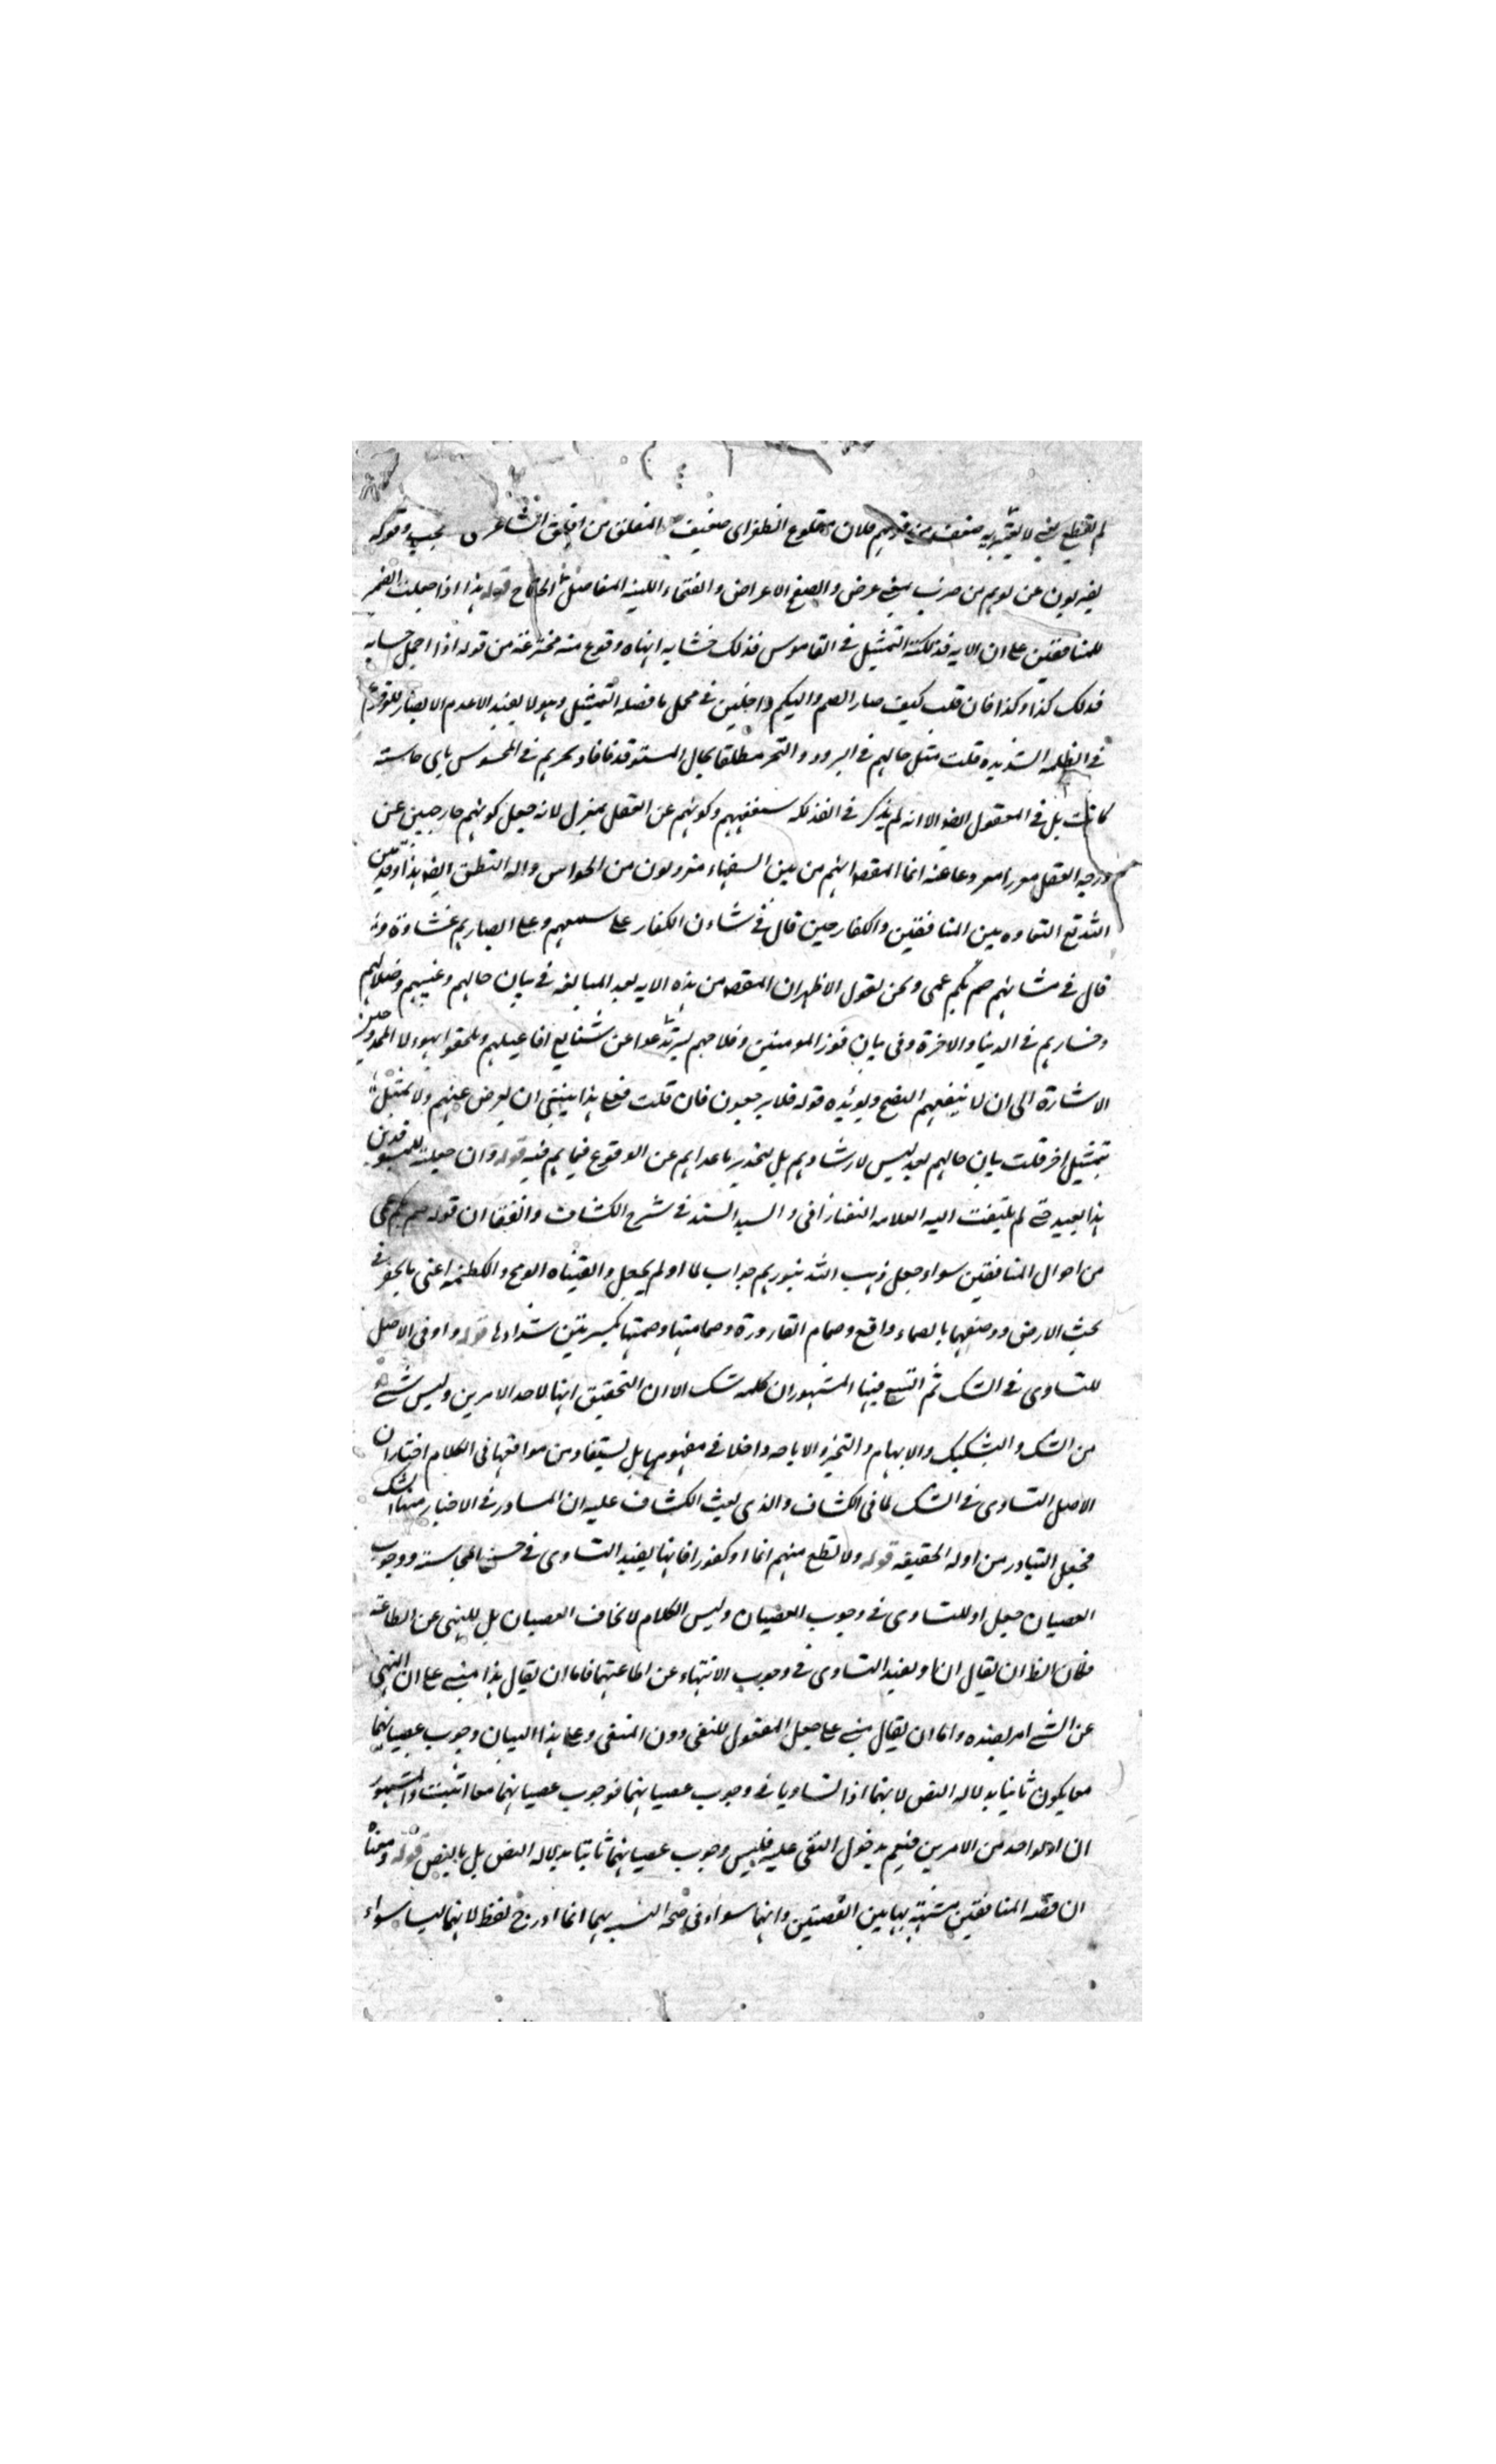 لم تقطع يعنى لا يعتريه ضعف من قولهم فلان مقلوع الظفر اى ضعيف المفلق من افلق الشاعر بعجيب وقوله
يضربون عن لويهم من ضرب يعنى عرض والصفح الاعراض والفتحاء اللينة المفاصل الجناح قوله هذا اذا جعلت الضمير
للمنافقين على ان الاية فذلكة التمثيل فى القاموس فذلك حسابه انهاه وفرغ منه مخترعة من قوله اذا اجمل حسابه
فذلك كذا وكذا فان قلت كيف صار الصم والبكم داخلين فى مجمل ما فصله التمثيل وهو لا يفيد الا عدم الابصار للوقوع
فى الظلمة الشديدة قلت مثل حالهم فى التحير مطلقا بحال المستوقد فافاد تحيرهم فى المحسوس باى حاسة
كانت بل فى المعقول ايضا الا انه لم يذكر فى الفذلكة سفههم وكونهم عن العقل بمعزل لانه جعل كونهم خارجين عن
درجة العقل انما المقصد انهم من بين السفهاء معزولون من الحواس وآلة النطق ايضا هذا وقد بين
الله تع التفاوت بين المنافقين والكفار حين قال فى شان الكفار على سمعهم وعلى ابصارهم غشاوة و
قال فى شانهم صم بكم عمى ونحن نقول الاظهر ان المقصد من هذه الاية بعد المبالغة فى بيان حالهم وغيهم وضلالهم
وخسارهم فى الدنيا والاخرة وفى بيان فوز المومنين وفلاحهم ليرتدعوا عن شنايع افاعيلهم ويلحقوا بهولاء الممدوحين
الاشارة الى ان لا ينفعهم النصح ويؤيده قوله فلا يرجعون فان قلت فعلى هذا ينبغى ان يعرض عنهم ولا يمثل
بتمثيل اخر قلت بيان حالهم بعد ليس لارشادهم بل لتحذير ما عداهم عن الوقوع فيما هم فيه قوله وان جعلته للمستوقدين
هذا بعيد حتى لم يلتفت اليه العلامة التفتازانى والسيد السند فى شرح الكشاف واتفقا ان قوله صم بكم عمى
من احوال المنافقين سواء جعل ذهب الله بنورهم جواب لما او لم يجعل والقناة الرمح والكظيمة اعنى ما يحفر فى
تحت الارض ووصفها بالصماء واقع وصمام القارورة وصمامتها وصمتها بكسرتين سدادها قوله واو فى الاصل
للتساوى فى الشك ثم اتسع فيها المشهور ان كلمة شك الا ان التحقيق انها لاحد الامرين وليس شىء
من الشك والتشكيك والابهام والتخيير والاباحة داخلا فى مفهومها بل يستفاد من مواقعها فى الكلام اختار ان
الاصل التساوى فى الشك لما فى الكشاف والذى بعث الكشاف عليه ان المتبادر فى الاخبار منها الشك
فجعل التبادر من ادلة الحقيقة قوله ولا تطع منهم اثما او كفورا فانها يفيد التساوى فى حسن المجالسة ووجوب
العصيان جعل او للتساوى فى وجوب العصيان وليس الكلام لايجاب العصيان بل للنهى عن الطاعة
فكان الظ ان يقال ان او يفيد التساوى فى وجوب الانتهاء عن اطاعتهما فاما ان يقال هذا مبنى على ان النهى
عن الشىء امر بضده واما ان يقال مبنى على جعل المفعول للنفى دون المنفى وعلى هذا البيان وجوب عصيانهما
معا يكون ثابتا بدلالة النص لانهما اذا تساويا فى وجوب عصيانهما فوجوب عصيانهما معا اثبت والمشهور
ان او لواحد من الامرين فيعم بدخول النفى عليه فليس وجوب عصيانهما ثابتا بدلالة النص بل بالنص قوله ومعناه
ان قصة المنافقين مشبهة بهاتين القصتين وانهما سواء فى صحة التشبيه بهما انما ادرج لفظ لانهما ليسا سواء